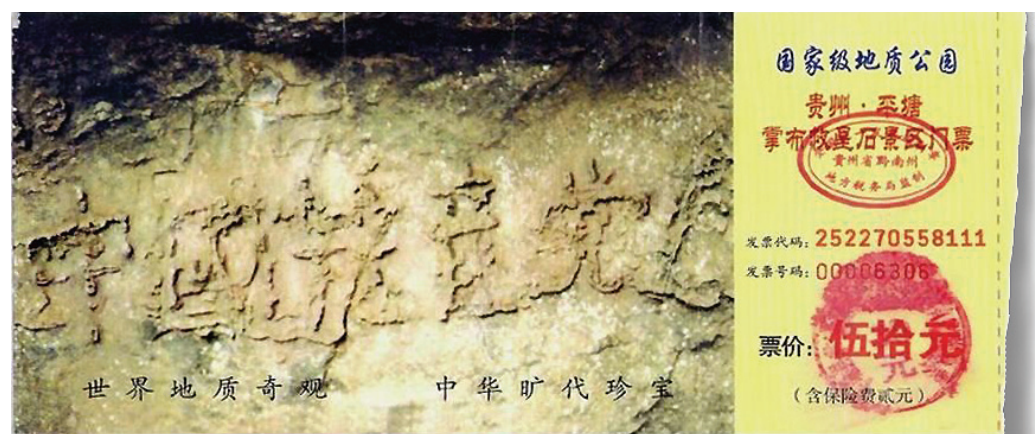 中國共産党
世界地质奇观 中华旷代珍宝
国家级地质公园
贵州·平塘
掌布救星石景区门票
贵州省黔南州
地方税务局监制
发票代码:252270558111
发票号码:00006306
票价:伍拾元
(含保险费贰元)